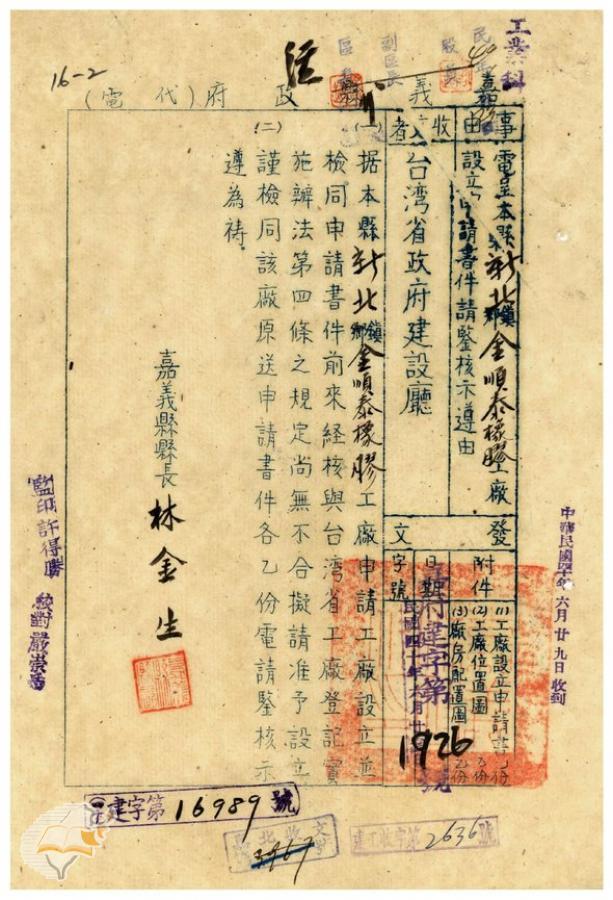 工業科
16-2
嘉義 政府(代電)
事由
電呈本縣新北鎮鄉金順泰橡膠工廠
設立申請書件請鑒核示遵由
收文者
台湾省政府建設廳
發文
附件
(1)工廠設立申請書
(2)工廠位置圖
(3)廠房配置圖 乙份
日期
字號
民國四十年六月
建字第
1926
號
(一)据本縣新北鎮鄉金順泰橡膠工廠申請工廠設立並
檢同申請書件前來経核與台湾省工廠登記實
施辦法第四條之規定尚無不合擬請准予設立
(二)謹檢同該廠原送申請書件各乙份電請鑒核示
遵為禱。
嘉義縣縣長 林金生
監印許得勝 校對嚴崇
中華民國四十年六月廿九日收到
建字第16989號
收文
3967
建工收字第2636號